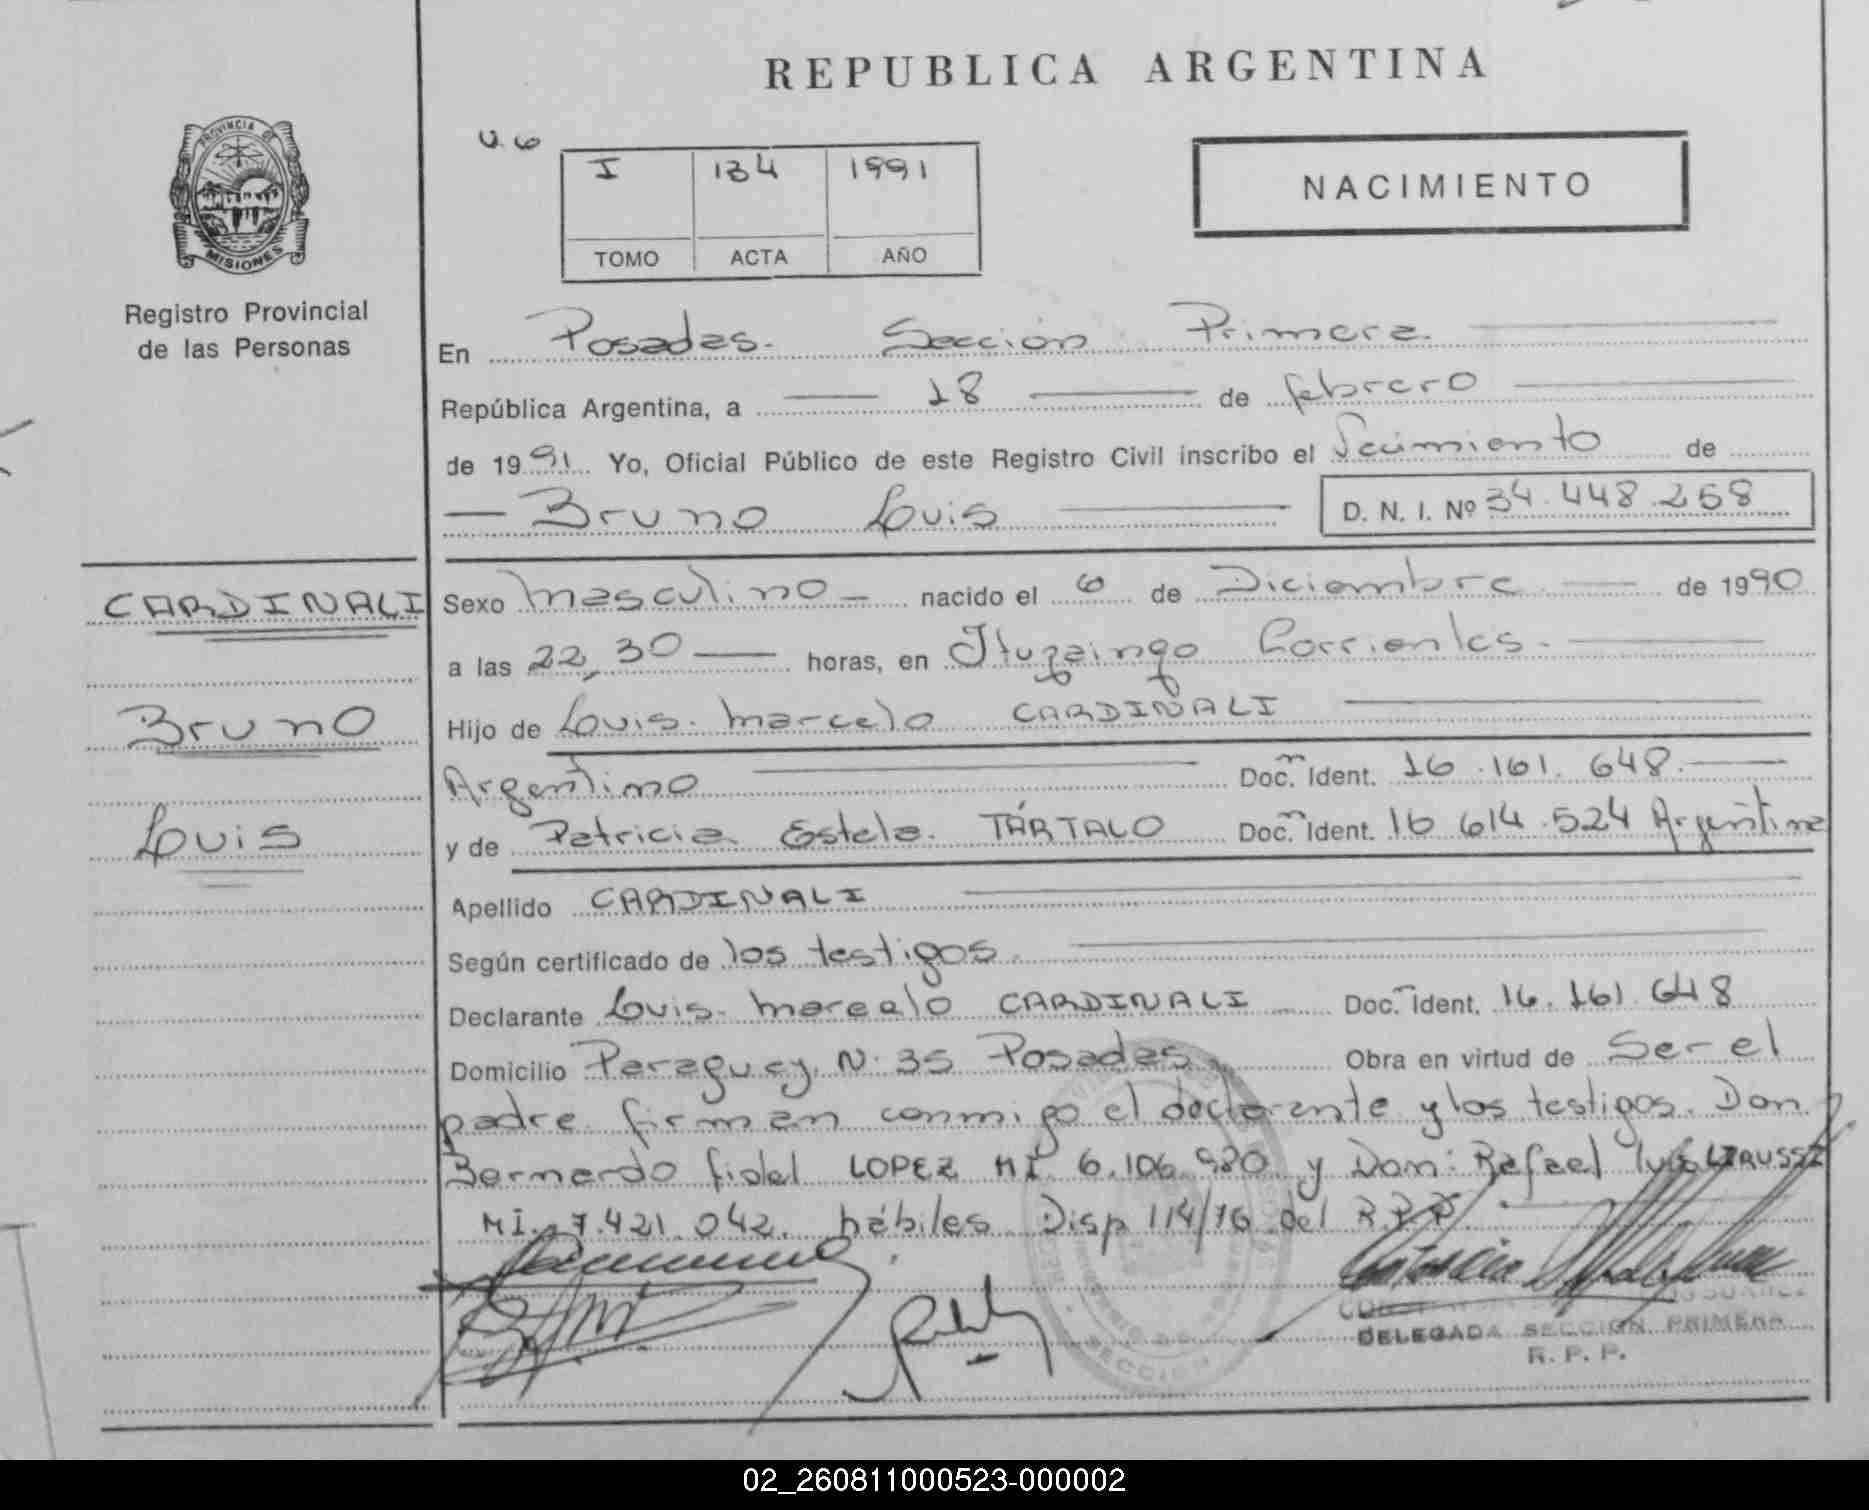 REPUBLICA ARGENTINA
PROVINCIA DE
MISIONES
Registro Provincial
de las Personas
U. 6
I 134 1991
TOMO ACTA AÑO
NACIMIENTO
En Posadas. Sección Primera.
República Argentina, a 18 de febrero
de 1991. Yo, Oficial Público de este Registro Civil inscribo el Nacimiento de
Bruno Luis D. N. I. Nº 34.448.258
CARDINALI
Bruno
Luis
Sexo masculino nacido el 6 de Diciembre de 1990
a las 22,30 horas, en Ituzaingo Corrientes.
Hijo de Luis. Marcelo CARDINALI
Argentino Doc. Ident. 16.161.648.
y de Patricia Estela. TÁRTALO Doc. Ident. 16 614.524 Argentina
Apellido CARDINALI
Según certificado de los testigos.
Declarante Luis. Marcelo CARDINALI Doc. Ident. 16.161.648
Domicilio Paraguay. N. 35 Posadas. Obra en virtud de Ser el
padre. firman conmigo el declarante y los testigos. Don
Bernardo fidel LOPEZ MI. 6.106.980 y Don: Rafael
MI. 7.421.042. hábiles. Disp 114/76 del R.P.P.
DELEGADA SECCION PRIMERA
R. P. P.
SECCION
02_260811000523-000002